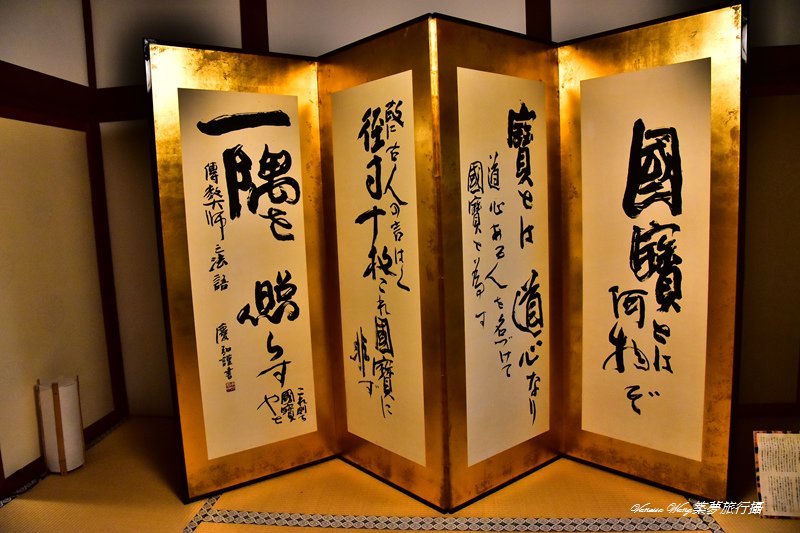 國寳とは
何物ぞ
寳とは道心なり
道心ある人を名づけて
國寳と為す
故に古人の言はく
径寸十枚これ國寳に
非ず
一隅を
照らす
これ則ち
國寳
なりと
傳教大師之法語
謹書
築夢旅行攝